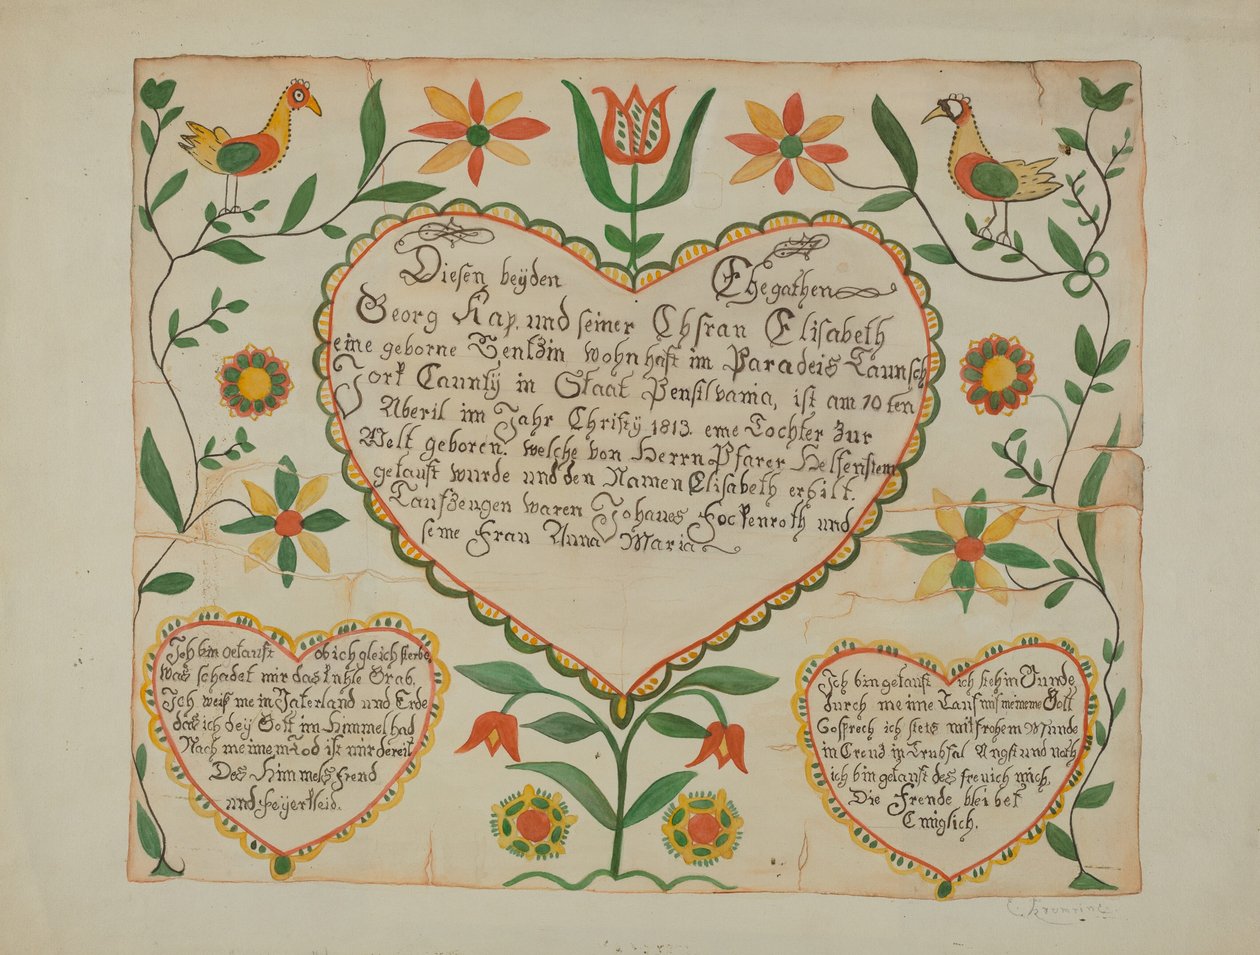 Diesen beyden Ehegathen
Georg Kap, und seiner Ehsfrau Elisabeth
eine geborne Ventzin wohnhaft im Paradeis Taunsch
York Caunty in Staat Pensilvania, ist am 10 ten
Aberil im Jahr Christy 1813. eine Tochter zur
Welt geboren. welche von Herrn Pfarer Helsenstem
getauft wurde und den Namen Elisabeth erhilt.
Taufzeugen waren Johanes Fockenroth und
seine Frau Anna Maria
Ich bin getauft ob ich gleich sterbe,
was schadet mir das kuhle Grab,
Ich weiß mein Vaterland und Erbe
das ich bey Gott im Himmel hab
Nach meinem Tod ist mir bereit
Des Himmels Freud
und Feyerkleid.
Ich bin getauft ich steh im Bunde
Durch meine Tauf mit meinem Gott
So sprech ich stets mit frohem Munde
in Creuz in Trubsal Angst und noth
ich bin getauft des freu ich mich,
Die Freude bleibet
Ewiglich.
C. Krumrine